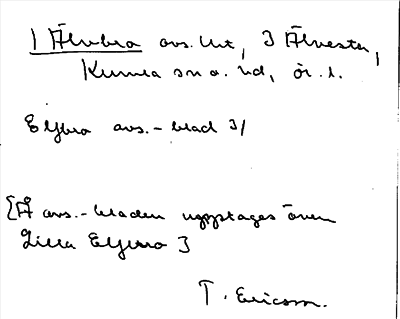 1 Älvbro avs. utt, 3 Älvesta,
Kumla sn o. hd, ör. l.
Elfbro avs.-blad 3/
[Å avs.-bladen upptages även
Lilla Elfbro]
T. Ericsson.